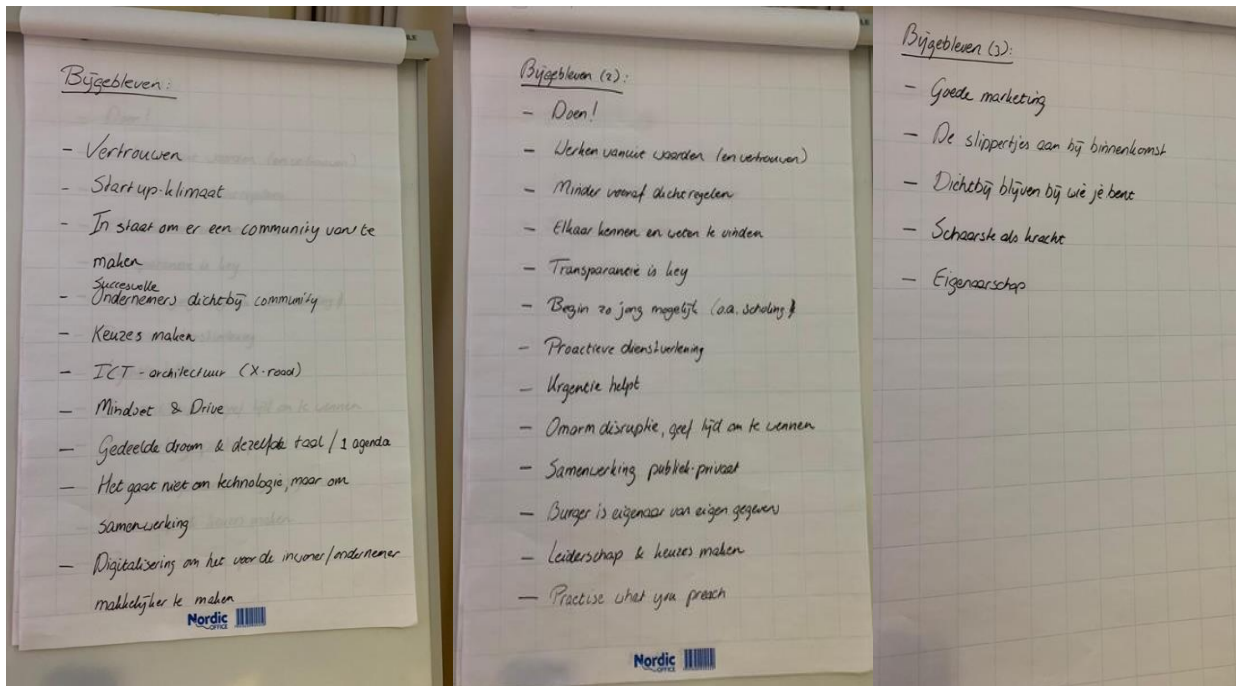 Bijgebleven:
- Vertrouwen
- Startup-klimaat
- In staat om er een community van te
maken
Succesvolle
- Ondernemers dichtbij community
- Keuzes maken
- ICT-architectuur (X-road)
- Mindset & Drive
- Gedeelde droom & dezelfde taal / 1 agenda
- Het gaat niet om technologie, maar om
samenwerking
- Digitalisering om het voor de inwoner/ondernemer
makkelijker te maken
Nordic
OFFICE
Bijgebleven (2):
- Doen!
- Werken vanuit waarden (en vertrouwen)
- Minder vooraf dichtregelen
- Elkaar kennen en weten te vinden
- Transparantie is key
- Begin zo jong mogelijk (o.a. scholing)
- Proactieve dienstverlening
- Urgentie helpt
- Omarm disruptie, geef tijd om te wennen
- Samenwerking publiek-privaat
- Burger is eigenaar van eigen gegevens
- Leiderschap & keuzes maken
- Practise what you preach
Nordic
OFFICE
Bijgebleven (3):
- Goede marketing
- De slippertjes aan bij binnenkomst
- Dichtbij blijven bij wie je bent
- Schaarste als kracht
- Eigenaarschap